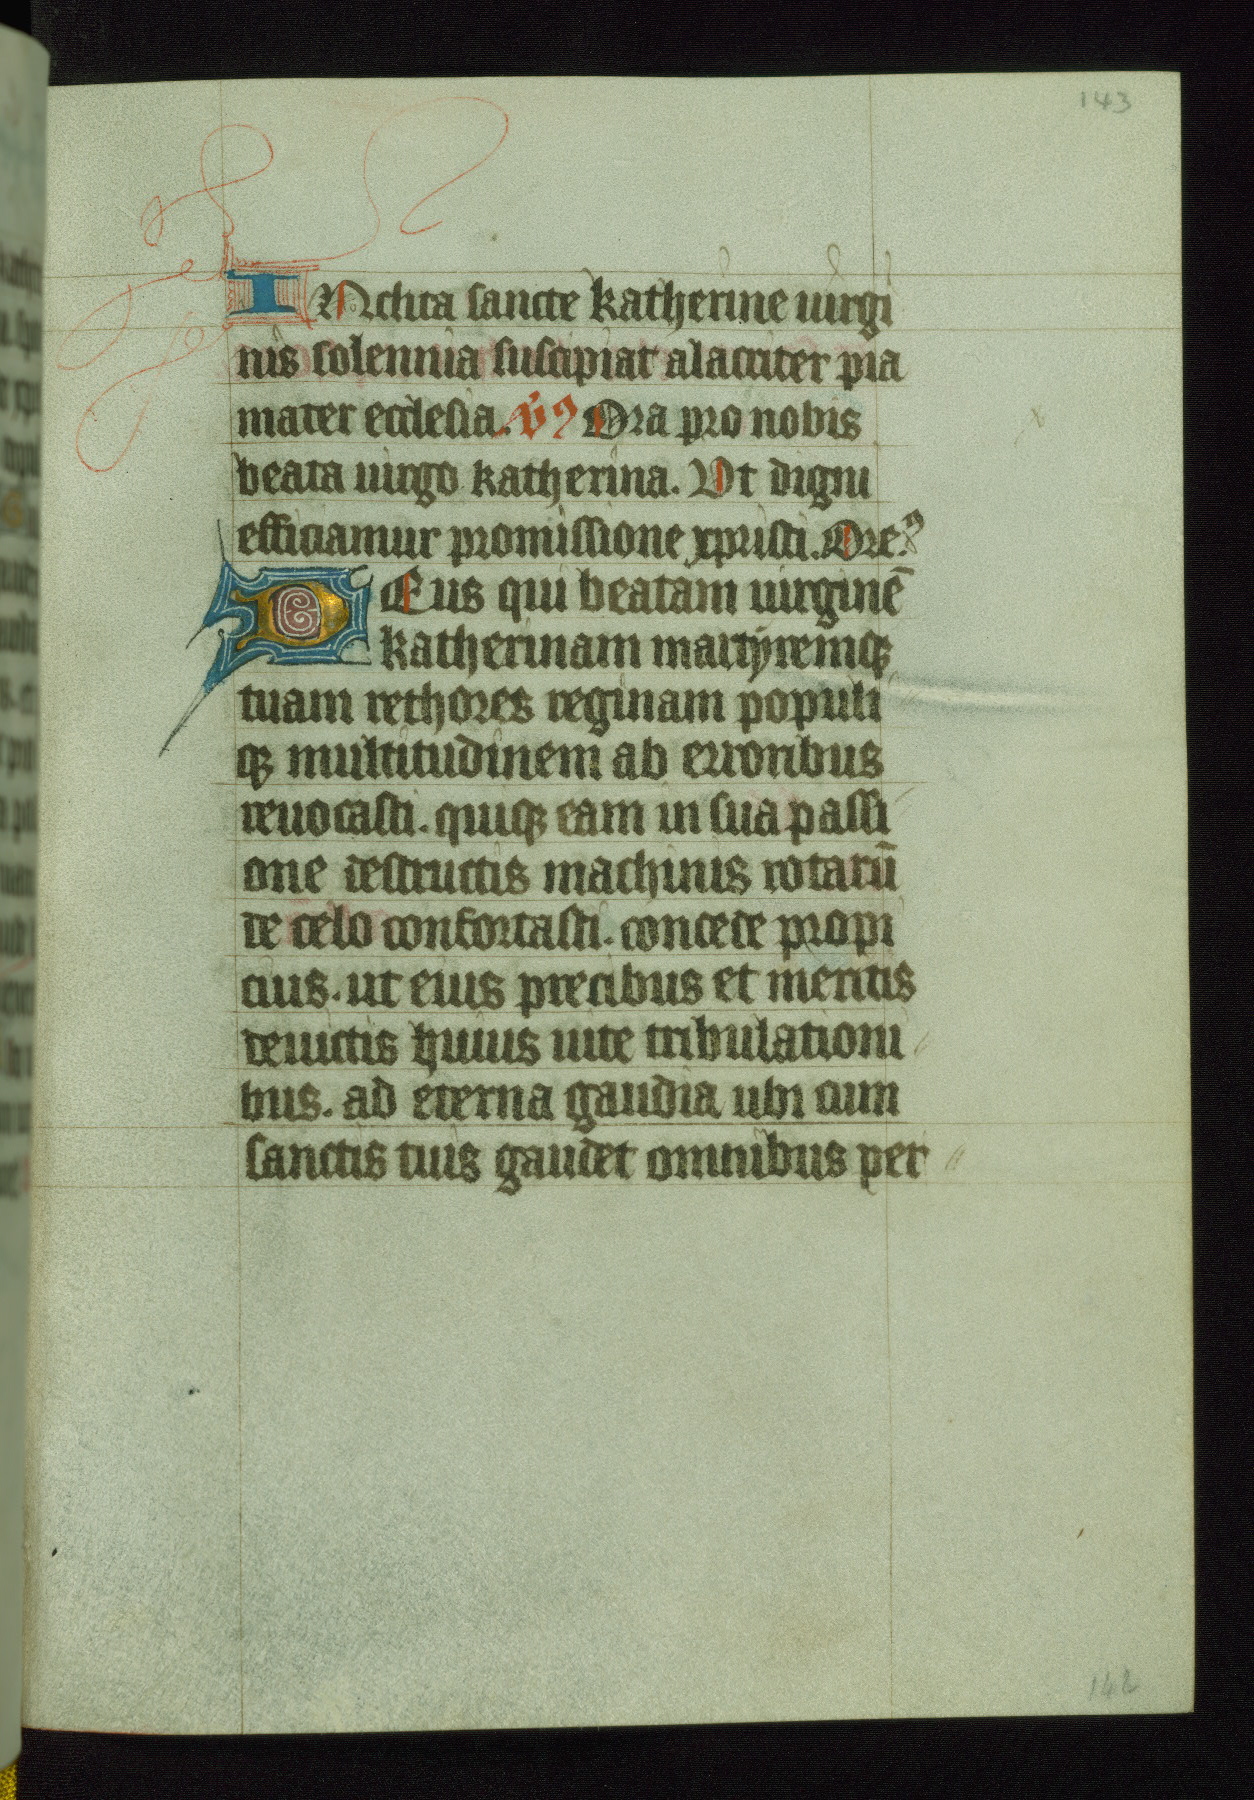 143
INclita sancte katherine uirgi
nis solennia suscipiat alacriter pia
mater ecclesia. V̉ꝰ Ora pro nobis
beata uirgo katherina. Vt digni
efficiamur promissione xpristi. Oreꝰ
DEus qui beatam uirginē
katherinam martyremqꝫ
tuam rethores reginam populi
qꝫ multitudinem ab erroribus
reuocasti. quiqꝫ eam in sua passi
one destructis machinis rotarū
de celo confortasti. concede propi
cius. ut eius precibus et meritis
deuictis huius uite tribulationi
bus. ad eterna gaudia ubi cum
sanctis tuis gaudet omnibus per
142